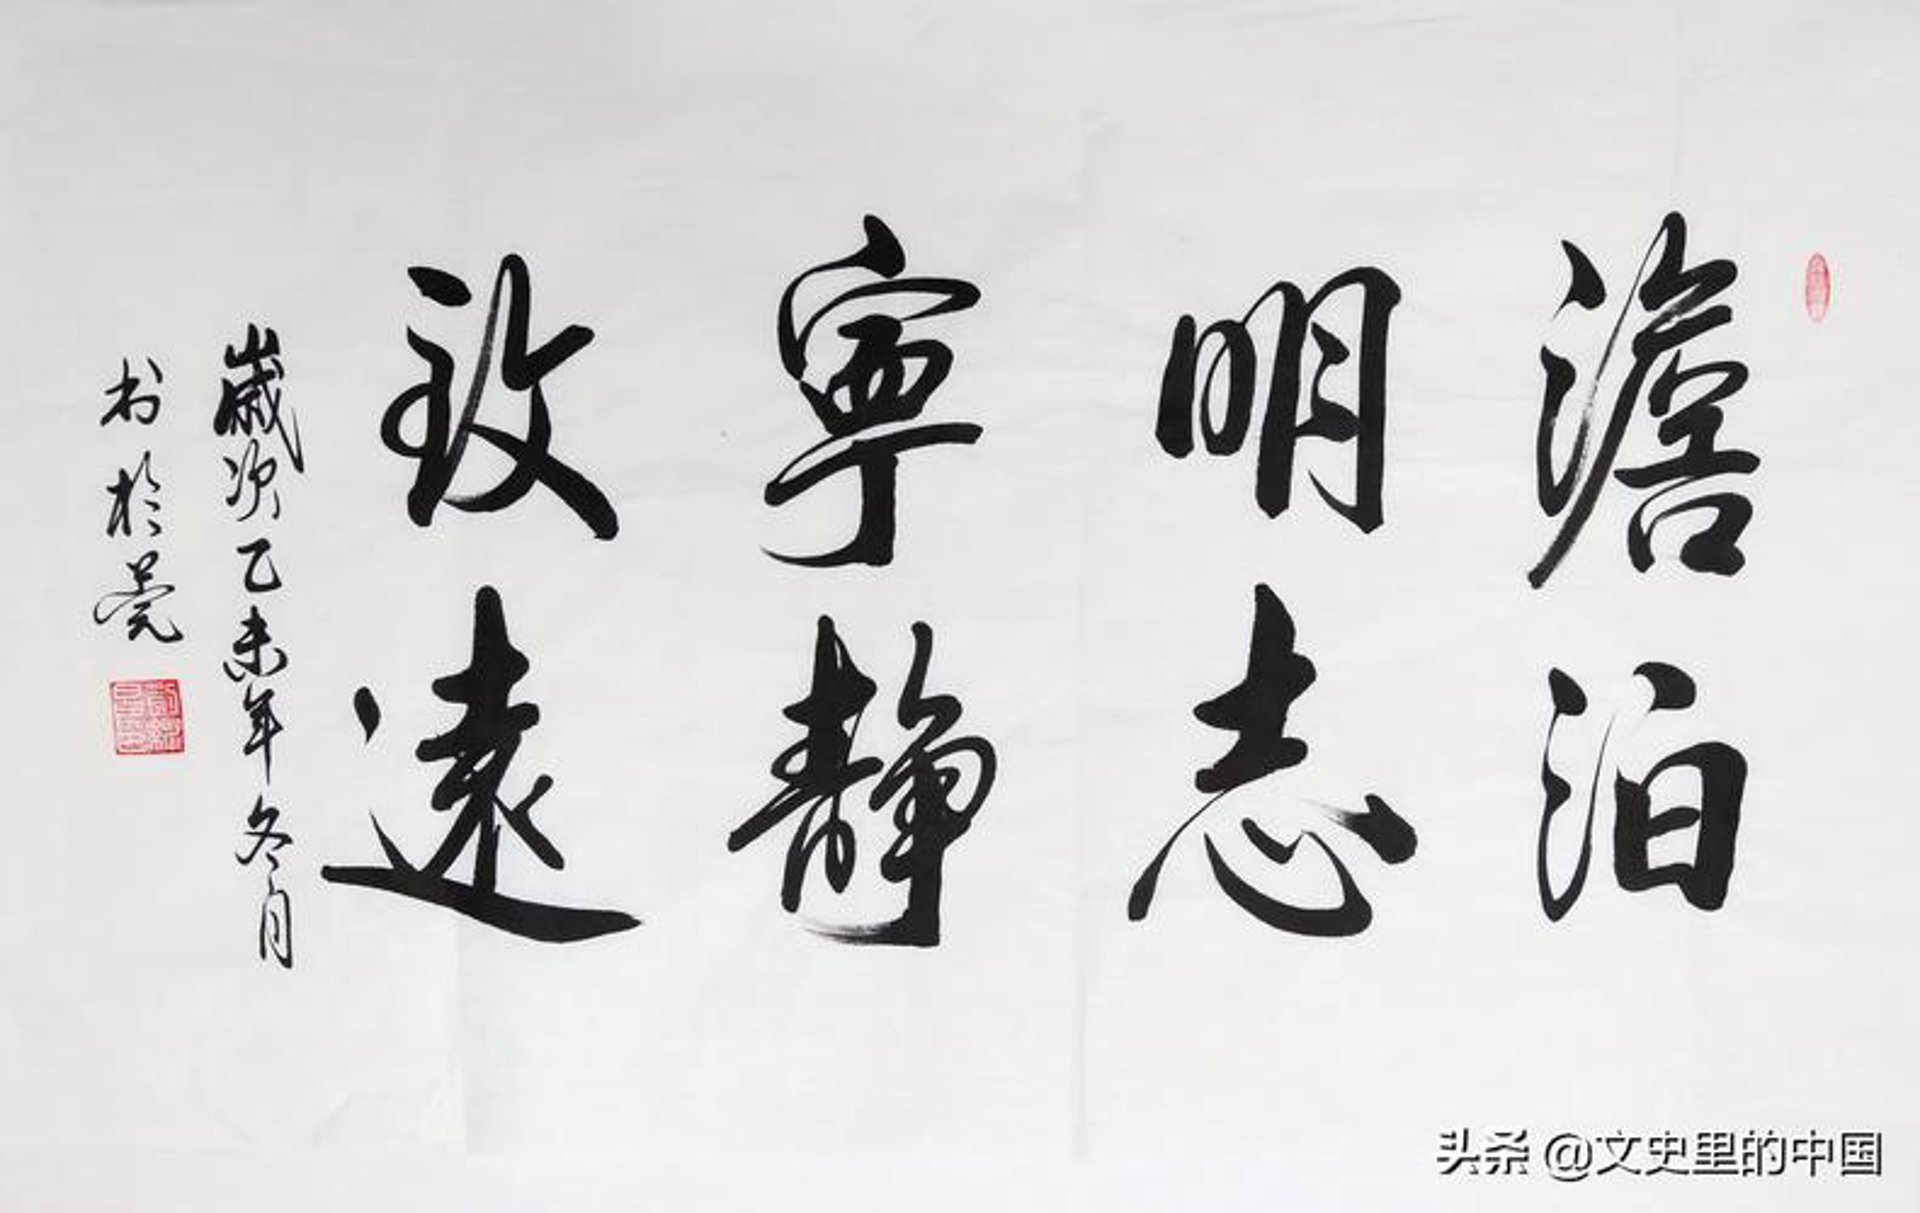 澹泊
明志
寧靜
致遠
歲次乙未年冬月
书於莞
头条 @文史里的中国